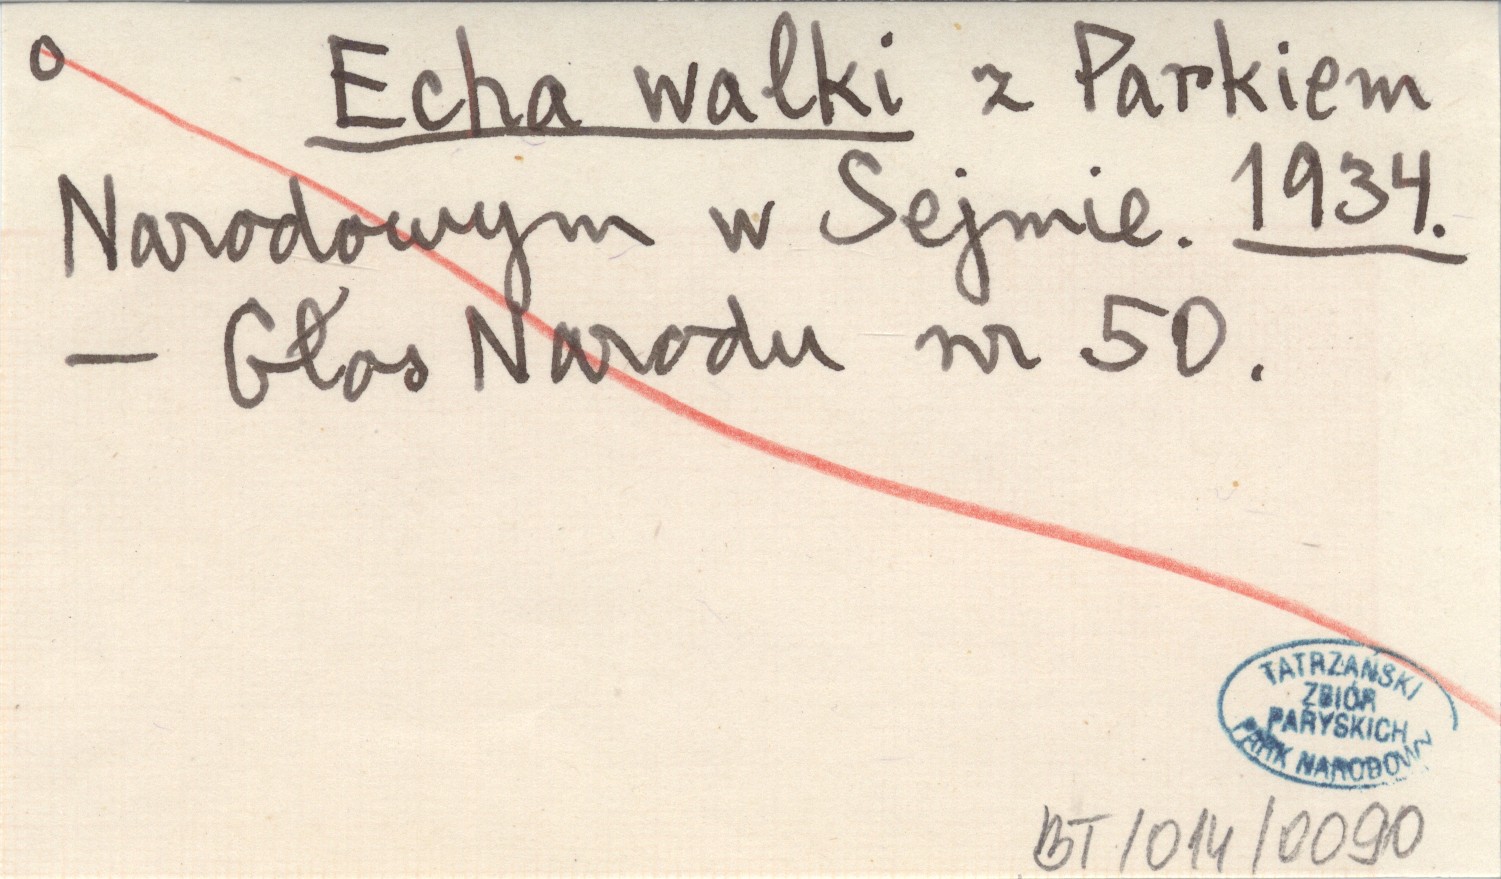 o Echa walki z Parkiem
Narodowym w Sejmie. 1934.
— Głos Narodu nr 50.
TATRZAŃSKI
ZBIÓR
PARYSKICH
PARK NARODOWY
BT/014/0090